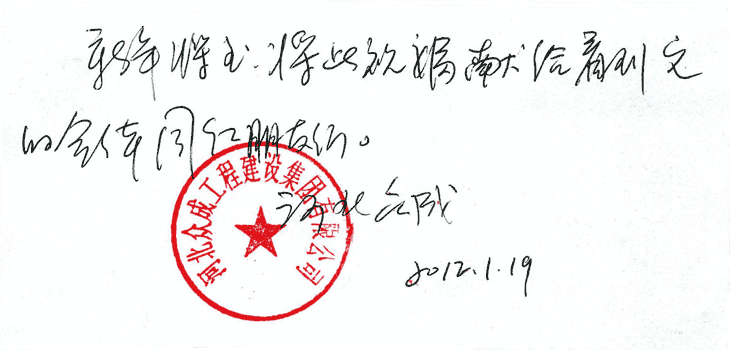 新年将至.将此祝福献给看到它
的全体同仁朋友们。
河北众成
2012.1.19
河北众成工程建设集团有限公司